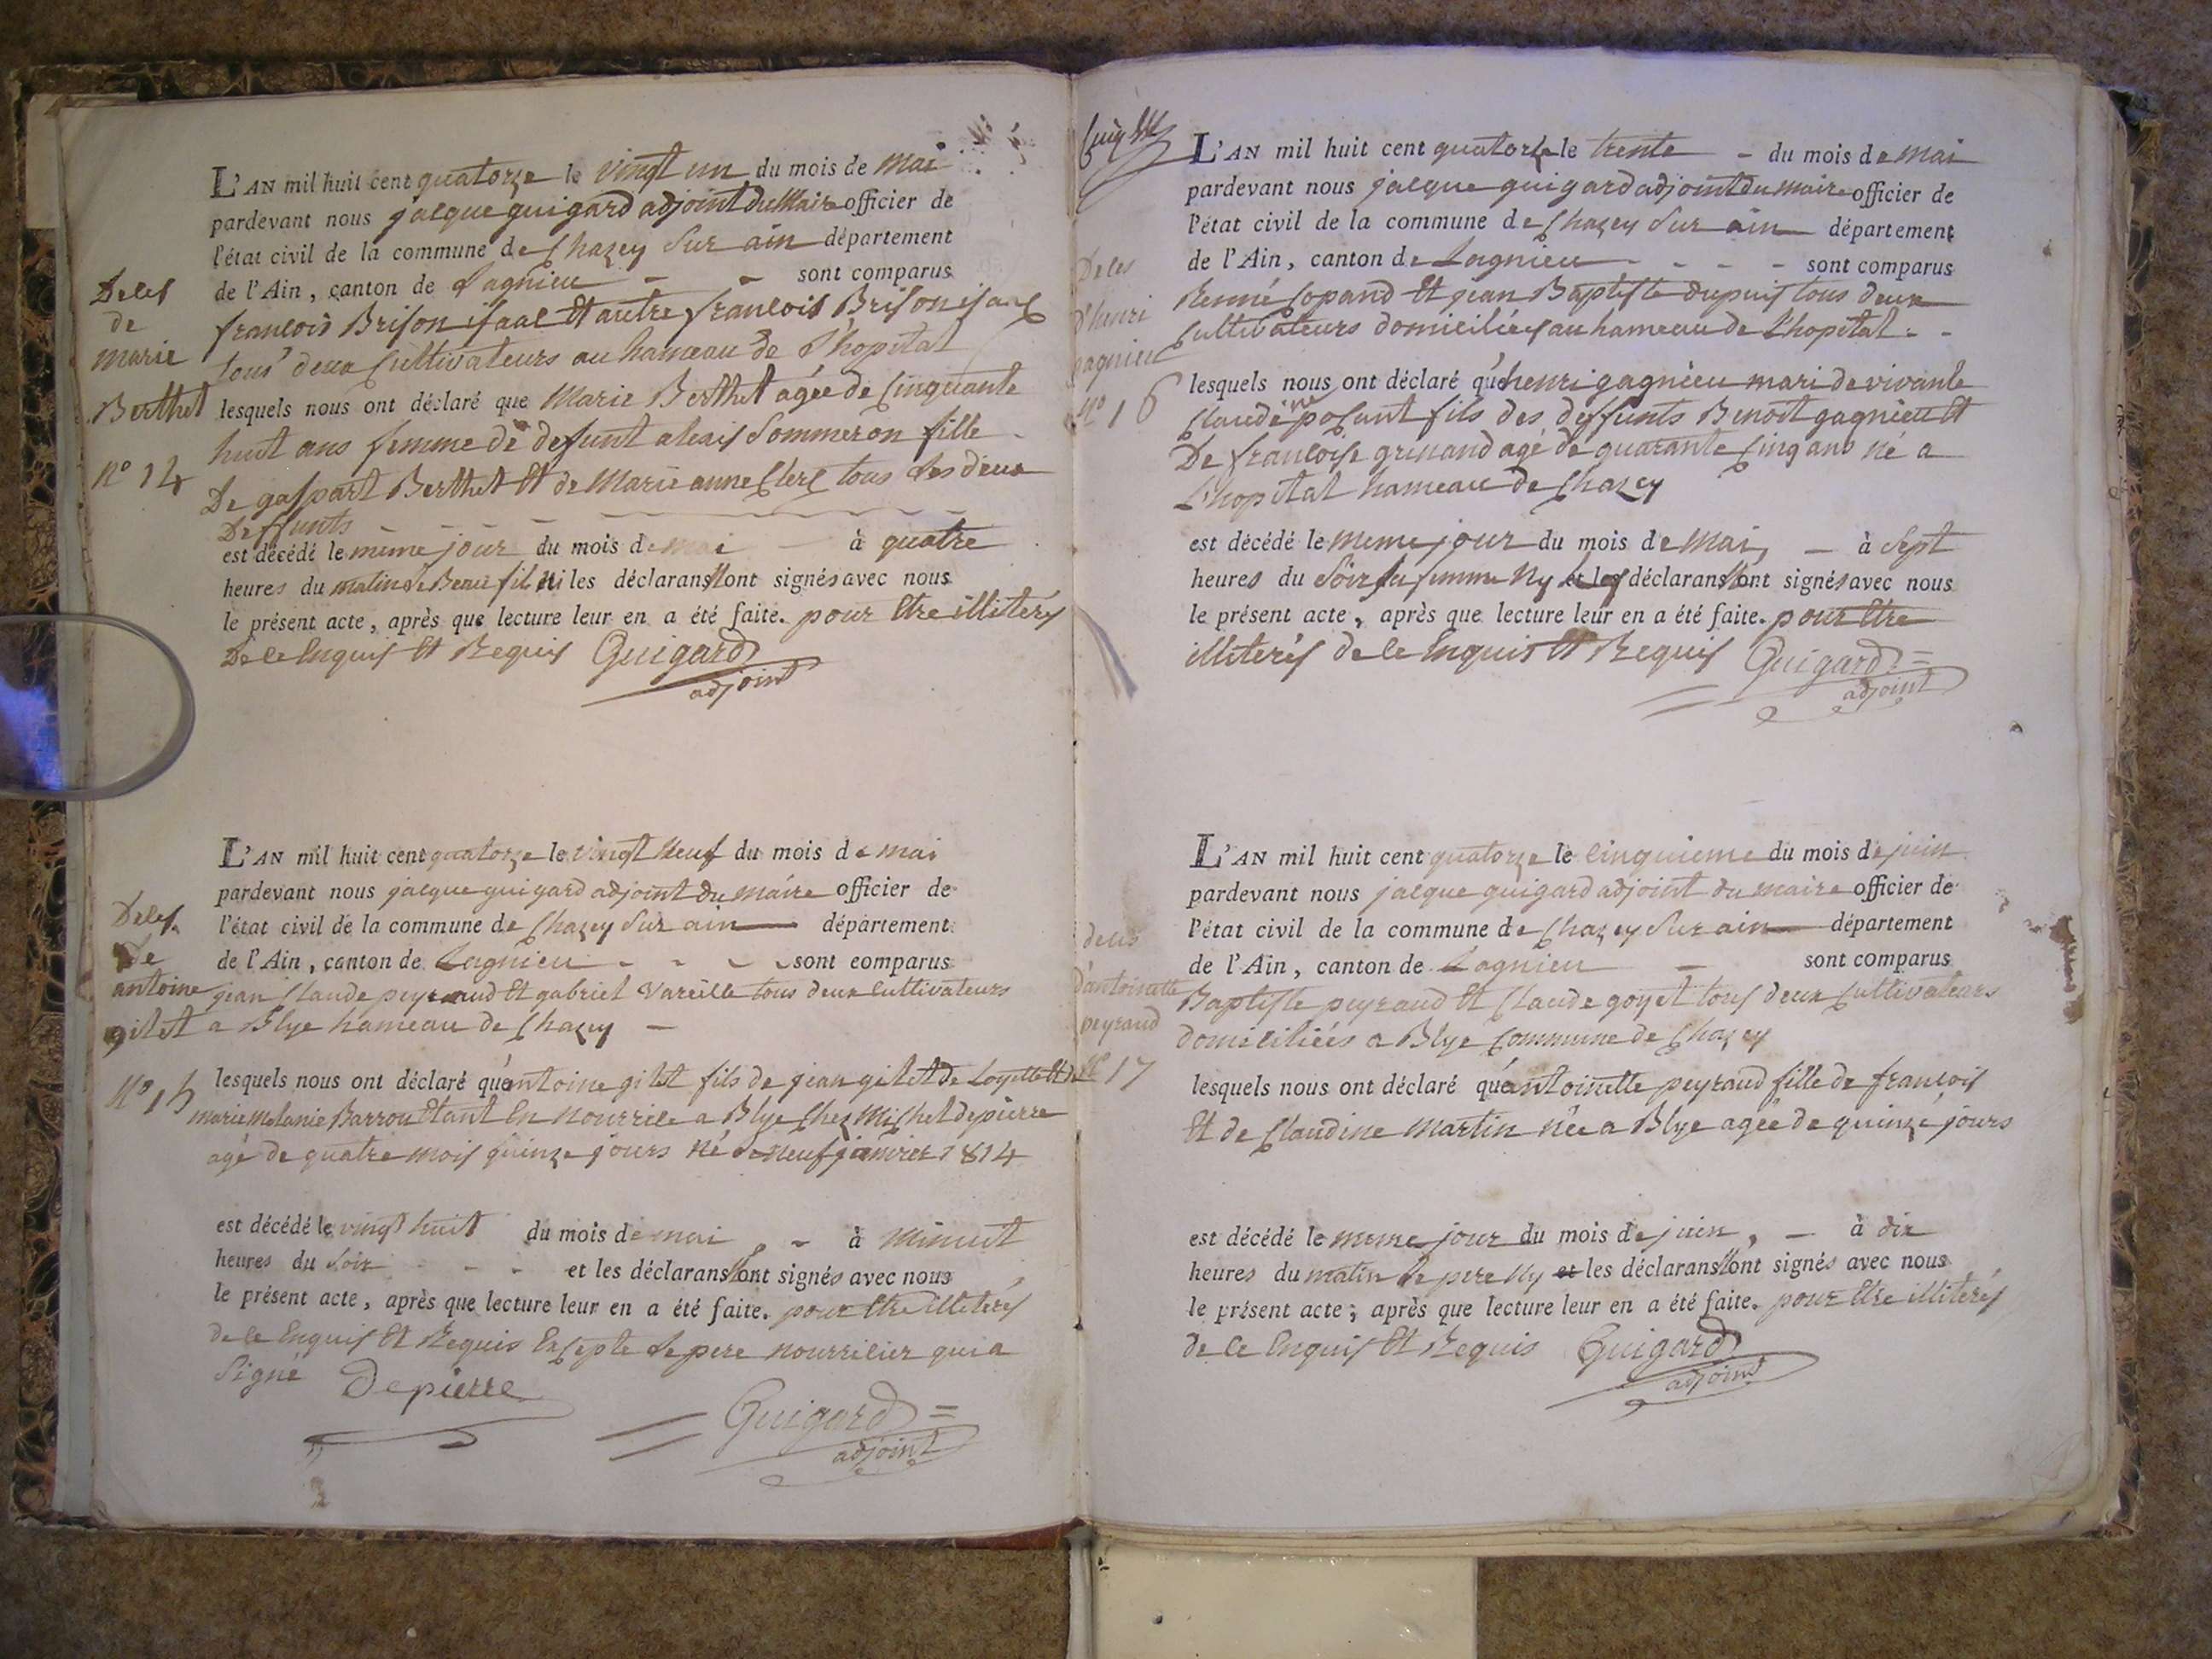 Deles
de
marie
Berthet
n° 14
L'AN mil huit cent quatorze le vingt un du mois de mai
pardevant nous jacque guigard adjoint du Maire officier de
l'état civil de la commune de Chazey Sur ain département
de l'Ain, canton de Lagnieu - - sont comparus
francois Brison isaac Et autre francois Brison isaac
tous deux Cultivateurs au hameau de L'hopital
lesquels nous ont déclaré que Marie Berthet agée de Cinquante
huit ans femme de defunt alexis Sommeron fille
De gaspart Berthet Et de Marie anne Clerc tous Les deux
Deffunts
est décédé le même jour du mois de mai - à quatre
heures du matin Le Beau fils Ni les déclarans n'ont signés avec nous
le présent acte, après que lecture leur en a été faite. pour Etre illiterés
De ce Enquis Et Requis Guigard
adjoint
Deles
De
antoine
gilet
N° 15
L'AN mil huit cent quatorze le vingt Neuf du mois de mai
pardevant nous jacque guigard adjoint du maire officier de
l'état civil de la commune de Chazey Sur ain département
de l'Ain, canton de Lagnieu - - - - sont comparus
jean Claude peyraud Et gabriel Vareille tous deux Cultivateurs
a Blye hameau de Chazey -
lesquels nous ont déclaré qu'antoine gilet fils de jean gilet de Loyette Et de
marie Melanie Barrou Etant En nourrice a Blye Chez Michel depierre
agé de quatre mois quinze jours né Le neuf janvier 1814
est décédé le vingt huit du mois de mai, - à minuit
heures du Soir - - - et les déclarans n'ont signés avec nous
le présent acte, après que lecture leur en a été faite. pour Etre illiterés
de ce Enquis Et Requis Excepte Le pere nourricier qui a
Signé Depierre
Guigard =
adjoint
Deles
d'henri
gagnieu
N° 16
L'AN mil huit cent quatorze le trente - du mois de mai
pardevant nous jacque guigard adjoint du maire officier de
l'état civil de la commune de Chazey Sur ain département
de l'Ain, canton de Lagnieu - - - - sont comparus
Renné Copand Et jean Baptiste dupuis tous deux
Cultivateurs domiciliées au hameau de L'hopital - -
lesquels nous ont déclaré qu'henri gagnieu mari de vivante
Claudine posant fils des deffunts Benoit gagnieu Et
De francoise grinand agé de quarante Cinq ans né a
L'hopital hameau de Chazey
est décédé le meme jour du mois de Mai, - à Sept
heures du Soir sa femme Ny les déclarans n'ont signés avec nous
le présent acte, après que lecture leur en a été faite. pour Etre
illiterés de ce Enquis Et Requis Guigard =
adjoint
deles
d'antoinette
peyraud
N° 17
L'AN mil huit cent quatorze le Cinquieme du mois de juin
pardevant nous jacque guigard adjoint du maire officier de
l'état civil de la commune de Chazey Sur ain département
de l'Ain, canton de Lagnieu - sont comparus
Baptiste peyraud Et Claude goyet tous deux Cultivateurs
domiciliées a Blye Commune de Chazey
lesquels nous ont déclaré qu'antoinette peyraud fille de francois
Et de Claudine Martin née a Blye agée de quinze jours
est décédé le meme jour du mois de juin, - à dix
heures du matin Le pere Ny et les déclarans n'ont signés avec nous
le présent acte; après que lecture leur en a été faite. pour Etre illiterés
de ce Enquis Et Requis Guigard
adjoint